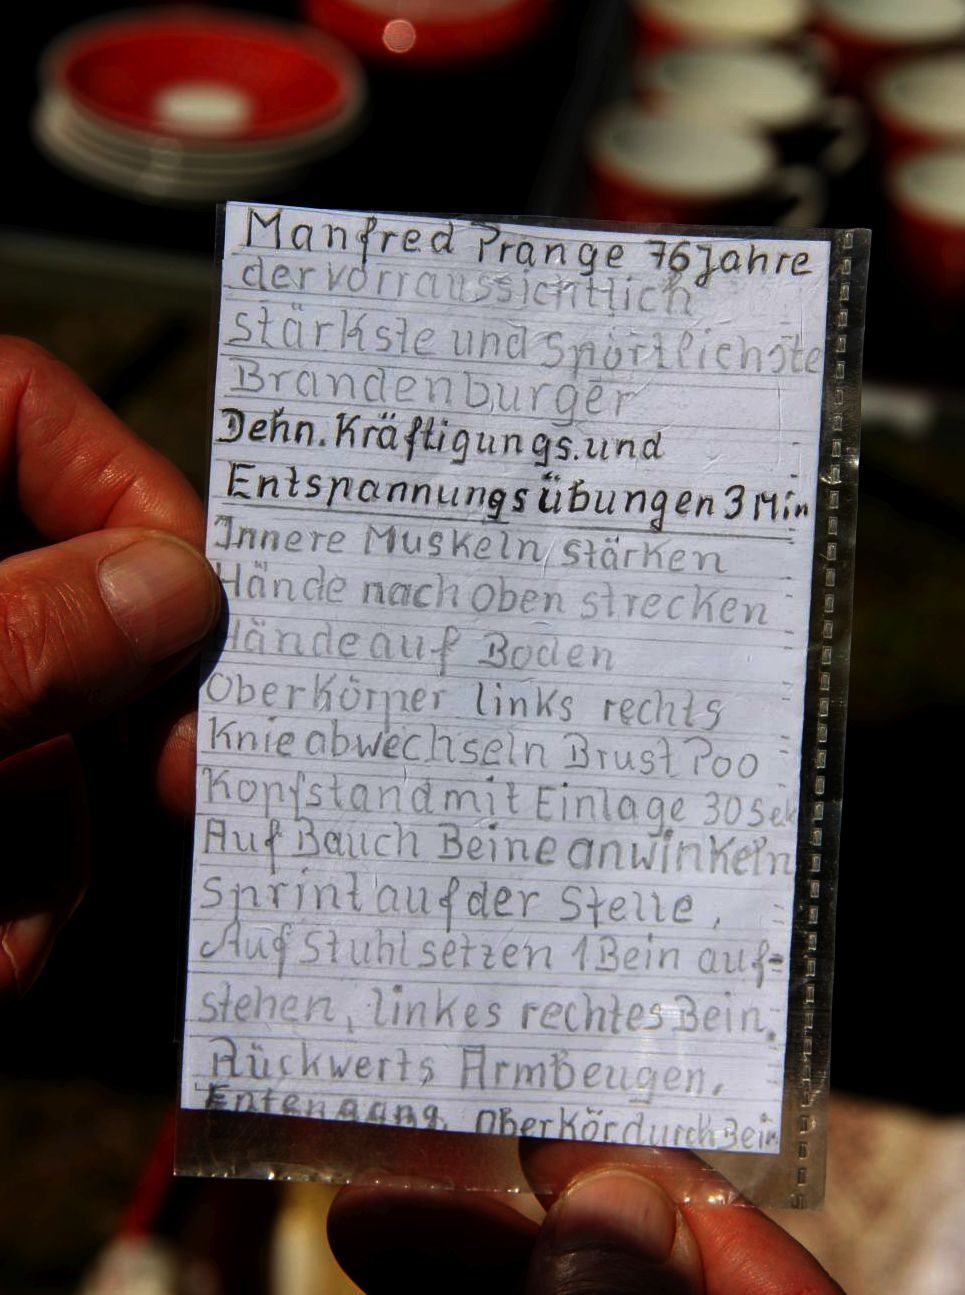 Manfred Prange 76 Jahre
der vorraussichtlich
stärkste und Sportlichste
Brandenburger
Dehn. Kräftigungs. und
Entspannungsübungen 3 Min
Innere Muskeln stärken
Hände nach oben strecken
Hände auf Boden
Oberkörper links rechts
Knie abwechseln Brust Poo
Kopfstand mit Einlage 30 Sek
Auf Bauch Beine anwinkeln
Sprint auf der Stelle,
Auf Stuhl setzen 1 Bein auf=
stehen, linkes rechtes Bein.
Rückwerts Armbeugen.
Entengang, Oberkör durch Bein